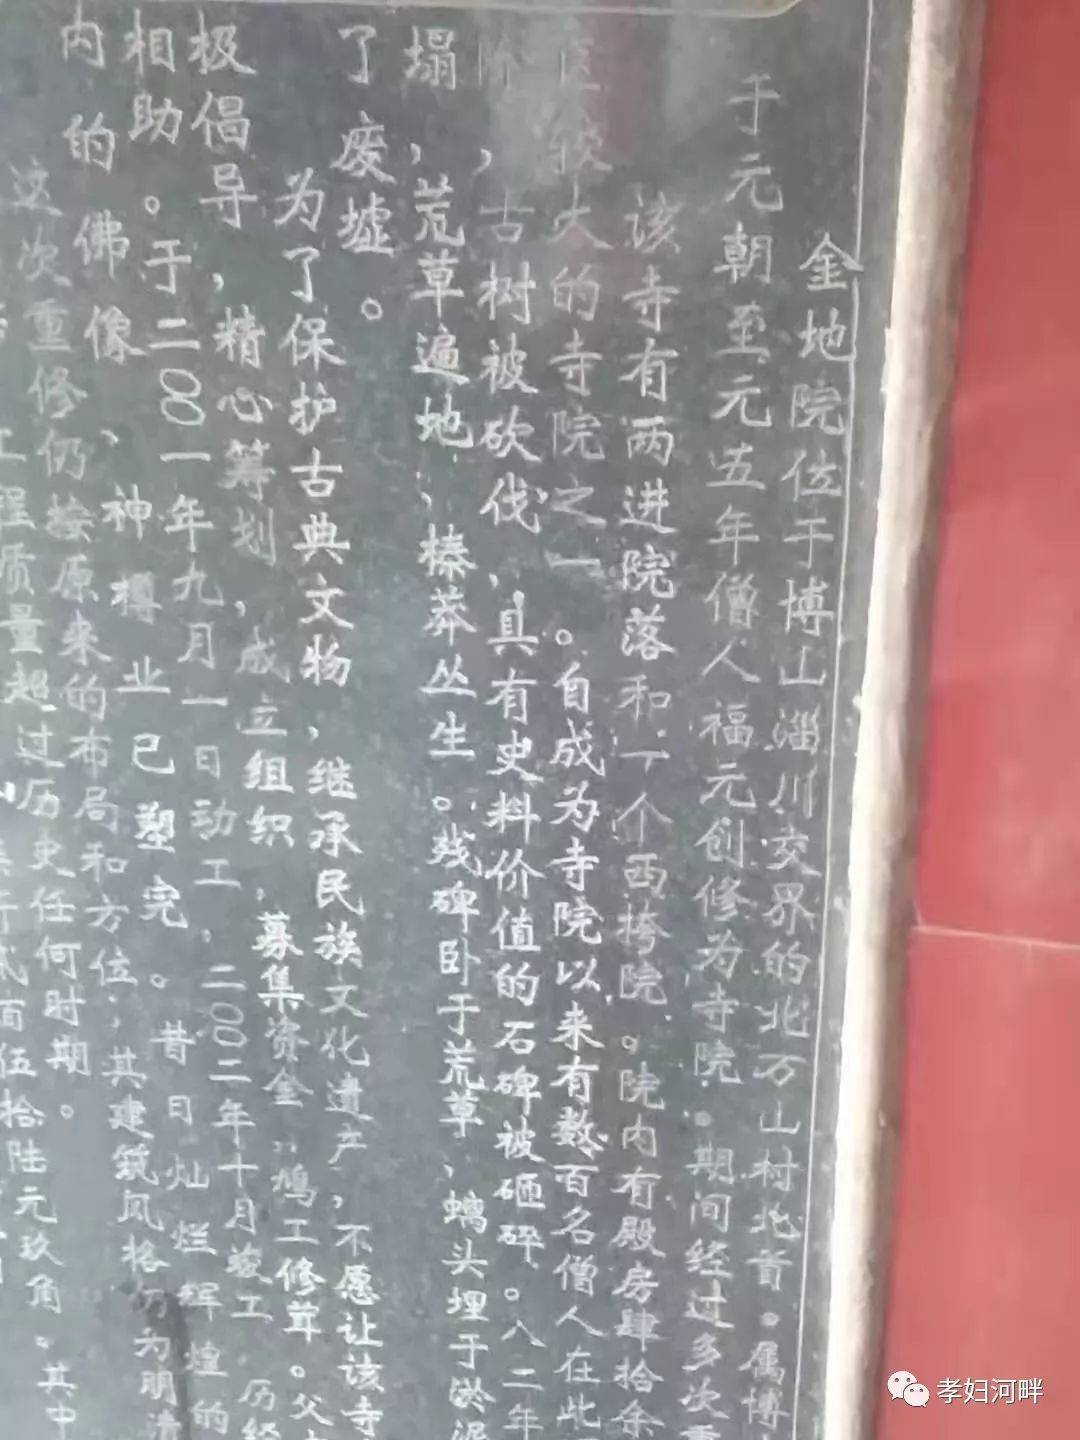 金地院位于博山淄川交界的北万山村北首。属博
于元朝至元五年僧人福元创修为寺院。期间经过多次重
该寺有两进院落和一个西挎院。院内有殿房肆拾余
区较大的寺院之一。自成为寺院以来有数百名僧人在此
，古树被砍伐，具有史料价值的石碑被砸碎。八二年
塌，荒草遍地，榛莽丛生。残碑卧于荒草，螭头埋于淤泥
了废墟。
为了保护古典文物，继承民族文化遗产，不愿让该寺
极倡导，精心筹划，成立组织，募集资金，鸠工修葺。
相助。于二00一年九月一日动工，二00二年十月竣工，历经
内的佛像、神樽业已塑完。昔日灿烂辉煌的
这次重修仍按原来的布局和方位，其建筑风格仍为明清
工程质量超过历史任何时期。
伍拾陆元玖角。其中
孝妇河畔